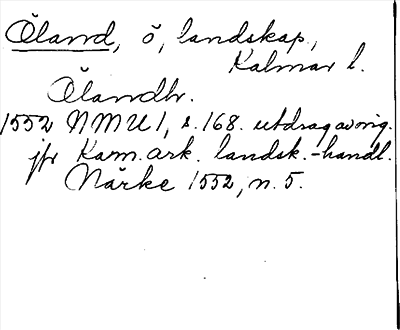 Öland, ö, landskap,
Kalmar l.
Ölandhr.
1552 NMU 1, s. 168. utdrag av orig.
jfr Kam. ark. landsk.-handl.
Närke 1552, n. 5.